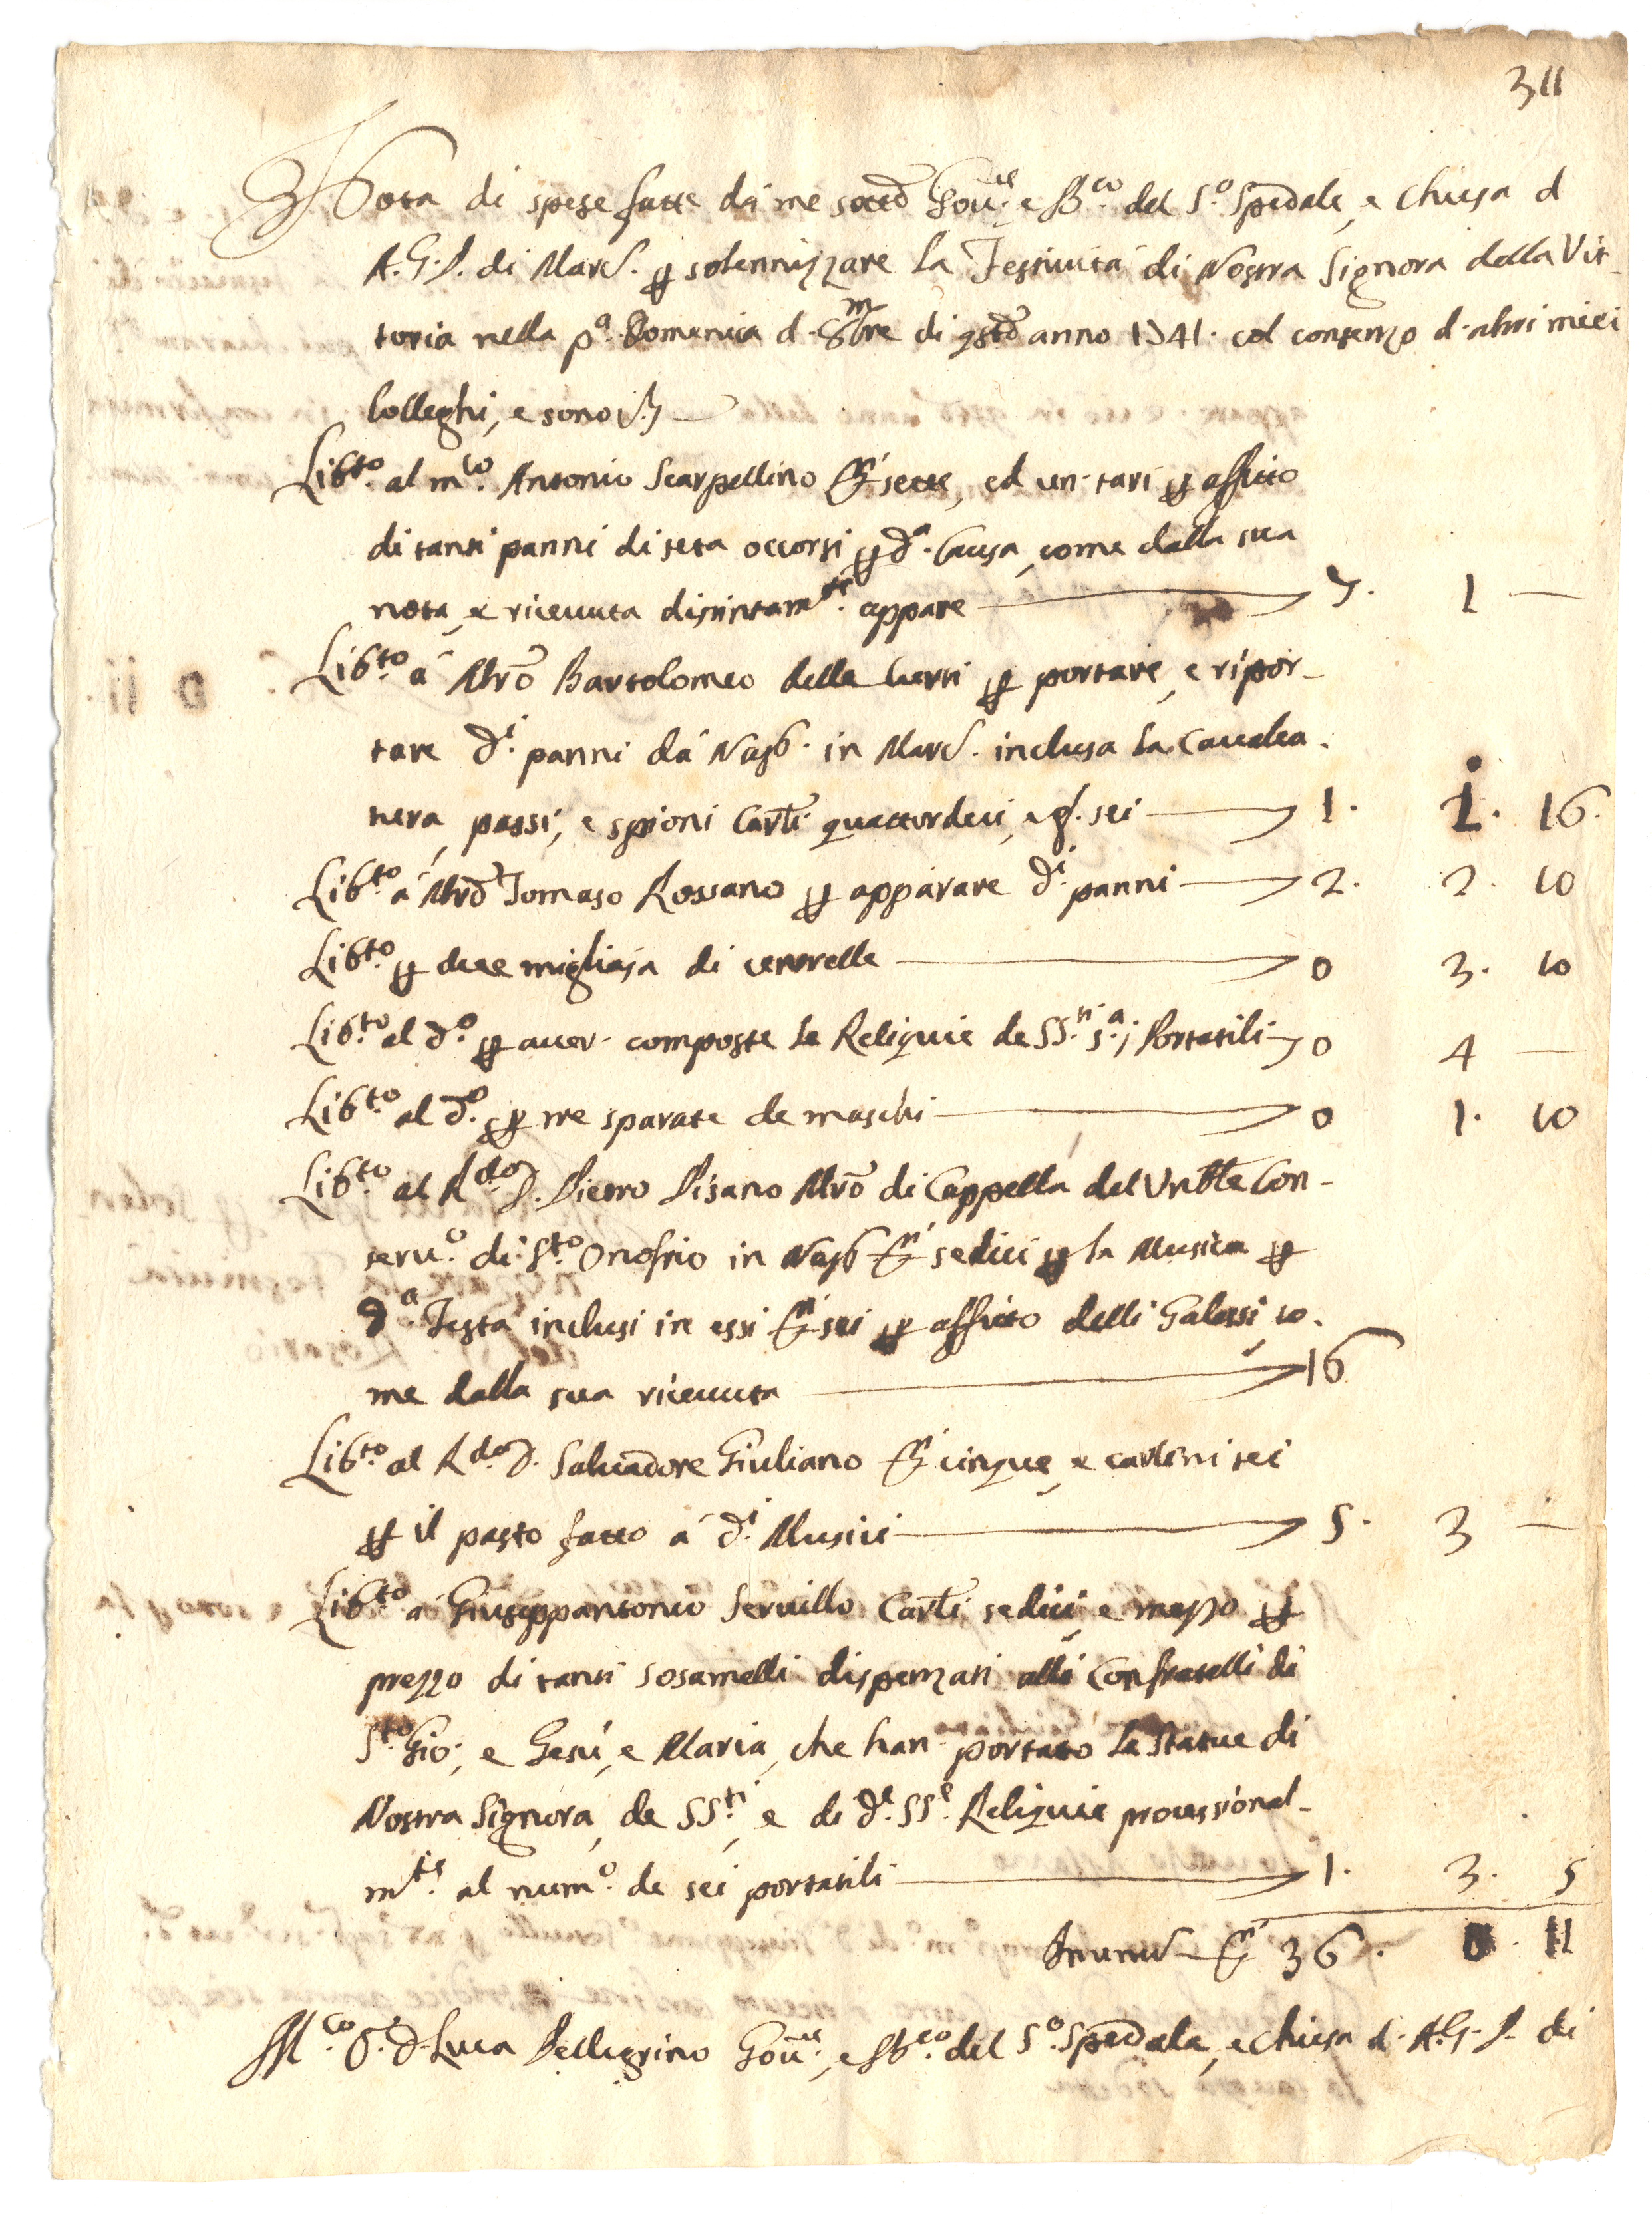 311
Nota di spese fatte dà me sottõ Gov.^re e B.^co del S.^o Spedale, e Chiesa d
A.G.P. di Marc.^o p solennizzare la Festività di Nostra Signora della Vit-
toria nella p.^a Domenica d. 9mbre di qstõ anno 1741. col consenzo d. altri miei
Colleghi, e sono
Lib.^to al m.^co Antonio Scarpellino D.^i sette, ed un tarì p affitto
di tanti panni di seta occorsi p d.^a Causa, come dalla sua
nota, e ricevuta distintam.^te appare 7. 1 —
Lib.^to à Mrõ Bartolomeo delle Curti p portare, e ripor-
tare d.^i panni dà Nap. in Marc.^o inclusa la Cavalca-
tura, passi, e spioni Carl.^i quattordeci, e g. sei 1. 1. 16.
Lib.^to à Mrõ Tomaso Rossano p apparare d.^i panni 2. 2. 10
Lib.^to p due migliaja di centrelle 0 3. 10
Lib.^to al d.^o p aver composte le Reliquie de SS.^ti Portatili 0 4 —
Lib.^to al d.^o p tre sparate de maschi 0 1. 10
Lib.^to al R.^do D. Pietro Pisano Mrõ di Cappella del Vnble Con-
serv.^o di S.^to Onofrio in Nap. D.^i sedici p la Musica p
d.^a Festa inclusi in essi D.^i sei p affitto delli Galessi, co-
me dalla sua ricevuta 16
Lib.^to al R.^do D. Salvadore Giuliano D.^i cinque, e carlini sei
p il pasto fatto à d.^i Musici 5. 3 —
Lib.^to à Giuseppantonio Servillo Carl.^i sedici, e mezzo p
prezzo di tanti sosamelli dispenzati alli Confratelli di
S.^to Gio:, e Gesù, e Maria, che han portato le Statue di
Nostra Signora, de SS.^ti, e di d.^e SS.^e Reliquie processional-
m.^te al num.^o de sei portatili 1. 3. 5
In unu D.^i 36. 0. 11
M.^co S.^r D. Luca Pellegrino Gov.^re, e B.^co del S.^o Spedale, e Chiesa d. A.G.P. di